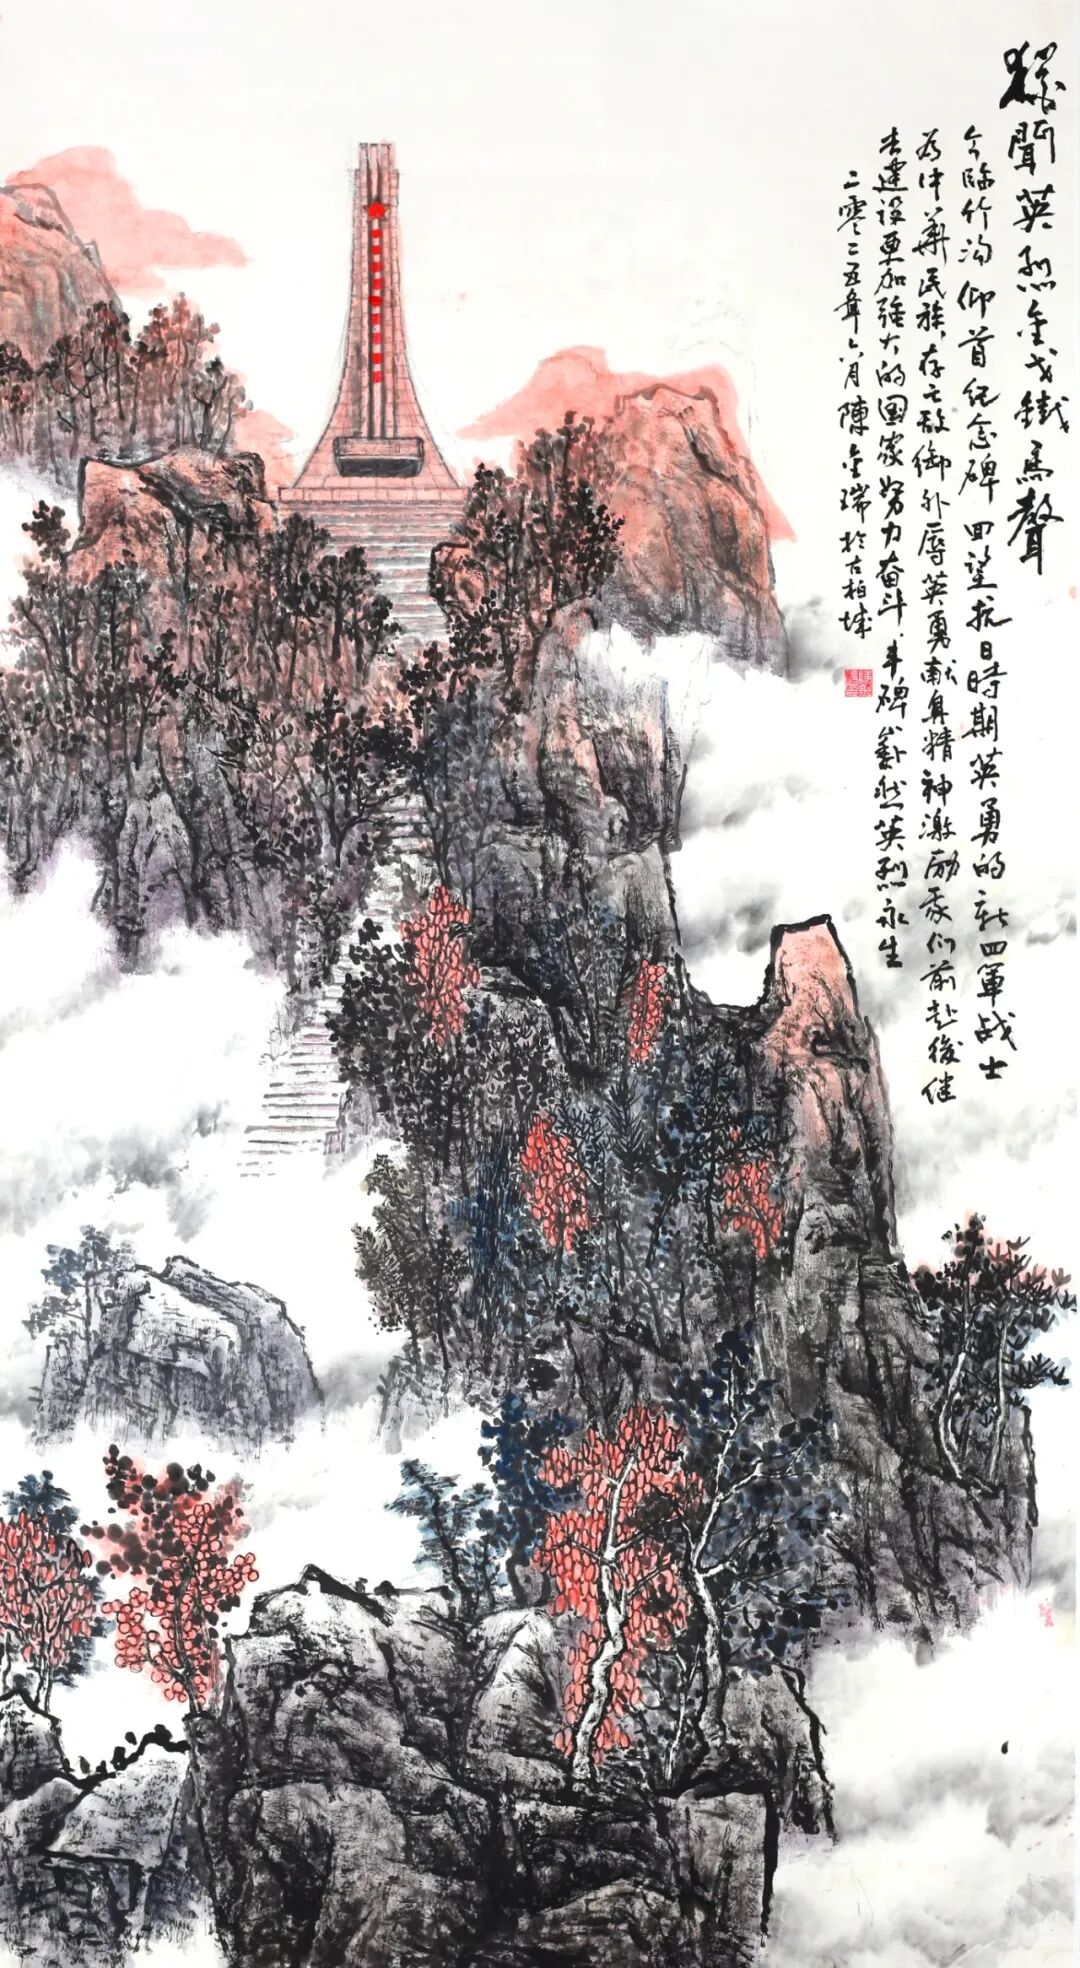 犹闻英烈金戈鐵馬聲
今临竹沟仰首纪念碑回望抗日時期英勇的新四軍战士
为中華民族存亡敌御外辱英勇献身精神激励我们前赴後继
去建设更加强大的国家努力奋斗丰碑巍然英烈永生
二零二五年六月陳金瑞於古柏城